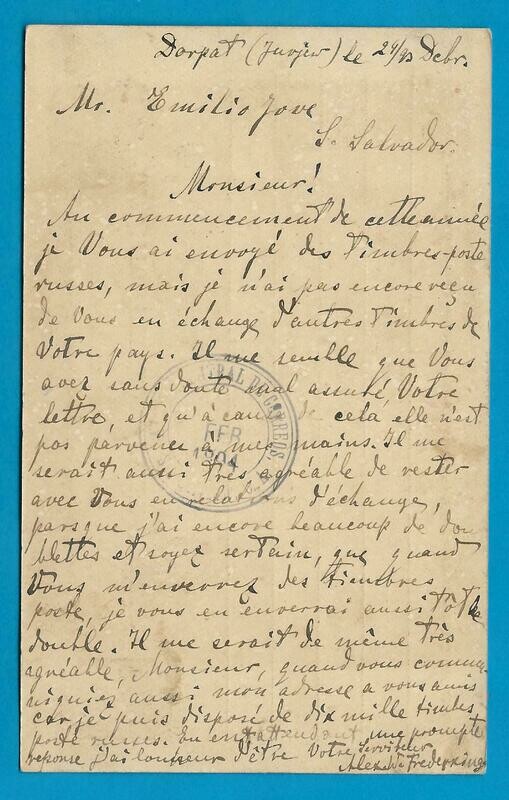 Dorpat (Jurjew) le 24/93 Debr.
Mr. Emilio Jove
S. Salvador.
Monsieur!
Au commencement de cette année
je Vous ai envoyé des timbres-poste
russes, mais je n'ai pas encore reçu
de Vous en échange d'autres timbres de
Votre pays. Il me semble que Vous
avez sans doute mal assuré, Votre
lettre, et qu'à cause de cela elle n'est
pas parvenu à mes mains. Il me
serait aussi très agréable de rester
avec Vous en relations d'échange,
parsque j'ai encore beaucoup de dou
blettes et soyez sertain, que quand
Vous m'enverrez des timbres
poste, je vous en enverrai aussitôt le
double. Il me serait de même très
agréable, Monsieur, quand vous commu
niquiez aussi mon adresse a vous amis
car je puis disposé de dix mille timbres
poste russes. En enttattendant une prompte
reponse j'ai l'onneur d'être Votre Serviteur
Frederking
CORREOS
FEB
1894